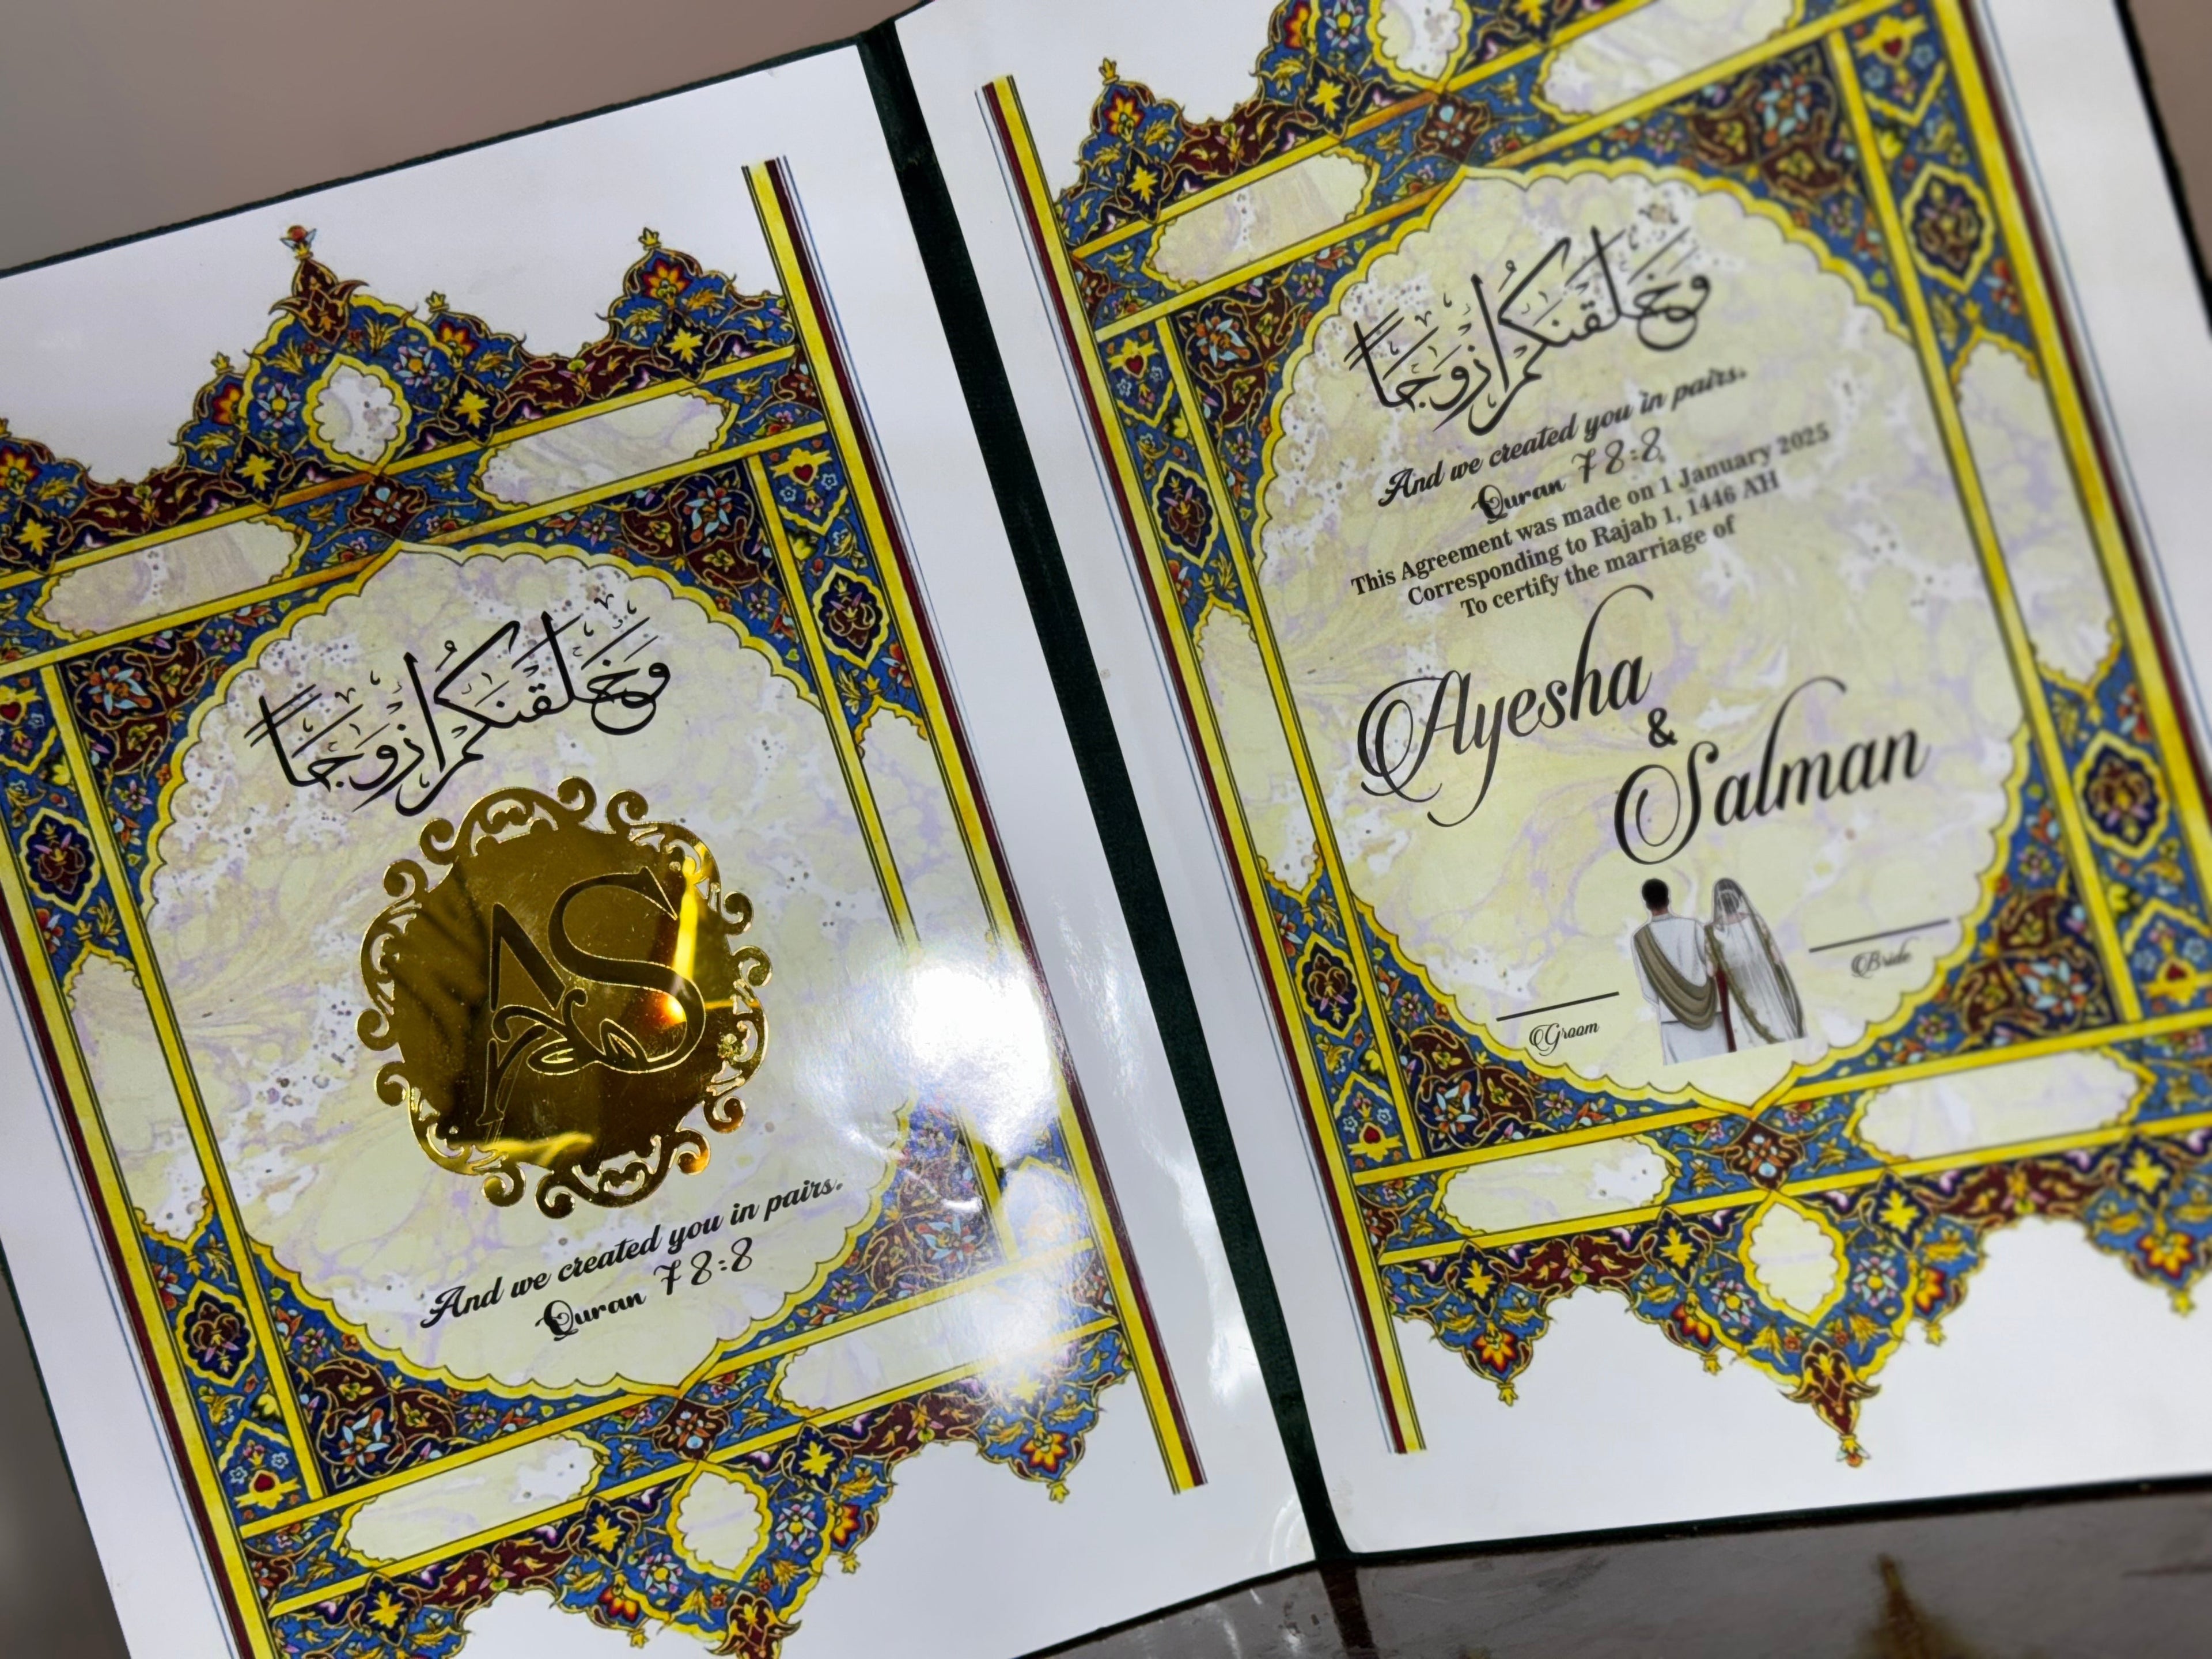 وخلقنكم ازوجا
AS
And we created you in pairs.
Quran 78:8
وخلقنكم ازوجا
And we created you in pairs.
Quran 78:8
This Agreement was made on 1 January 2025
Corresponding to Rajab 1, 1446 AH
To certify the marriage of
Ayesha
&
Salman
Groom
Bride